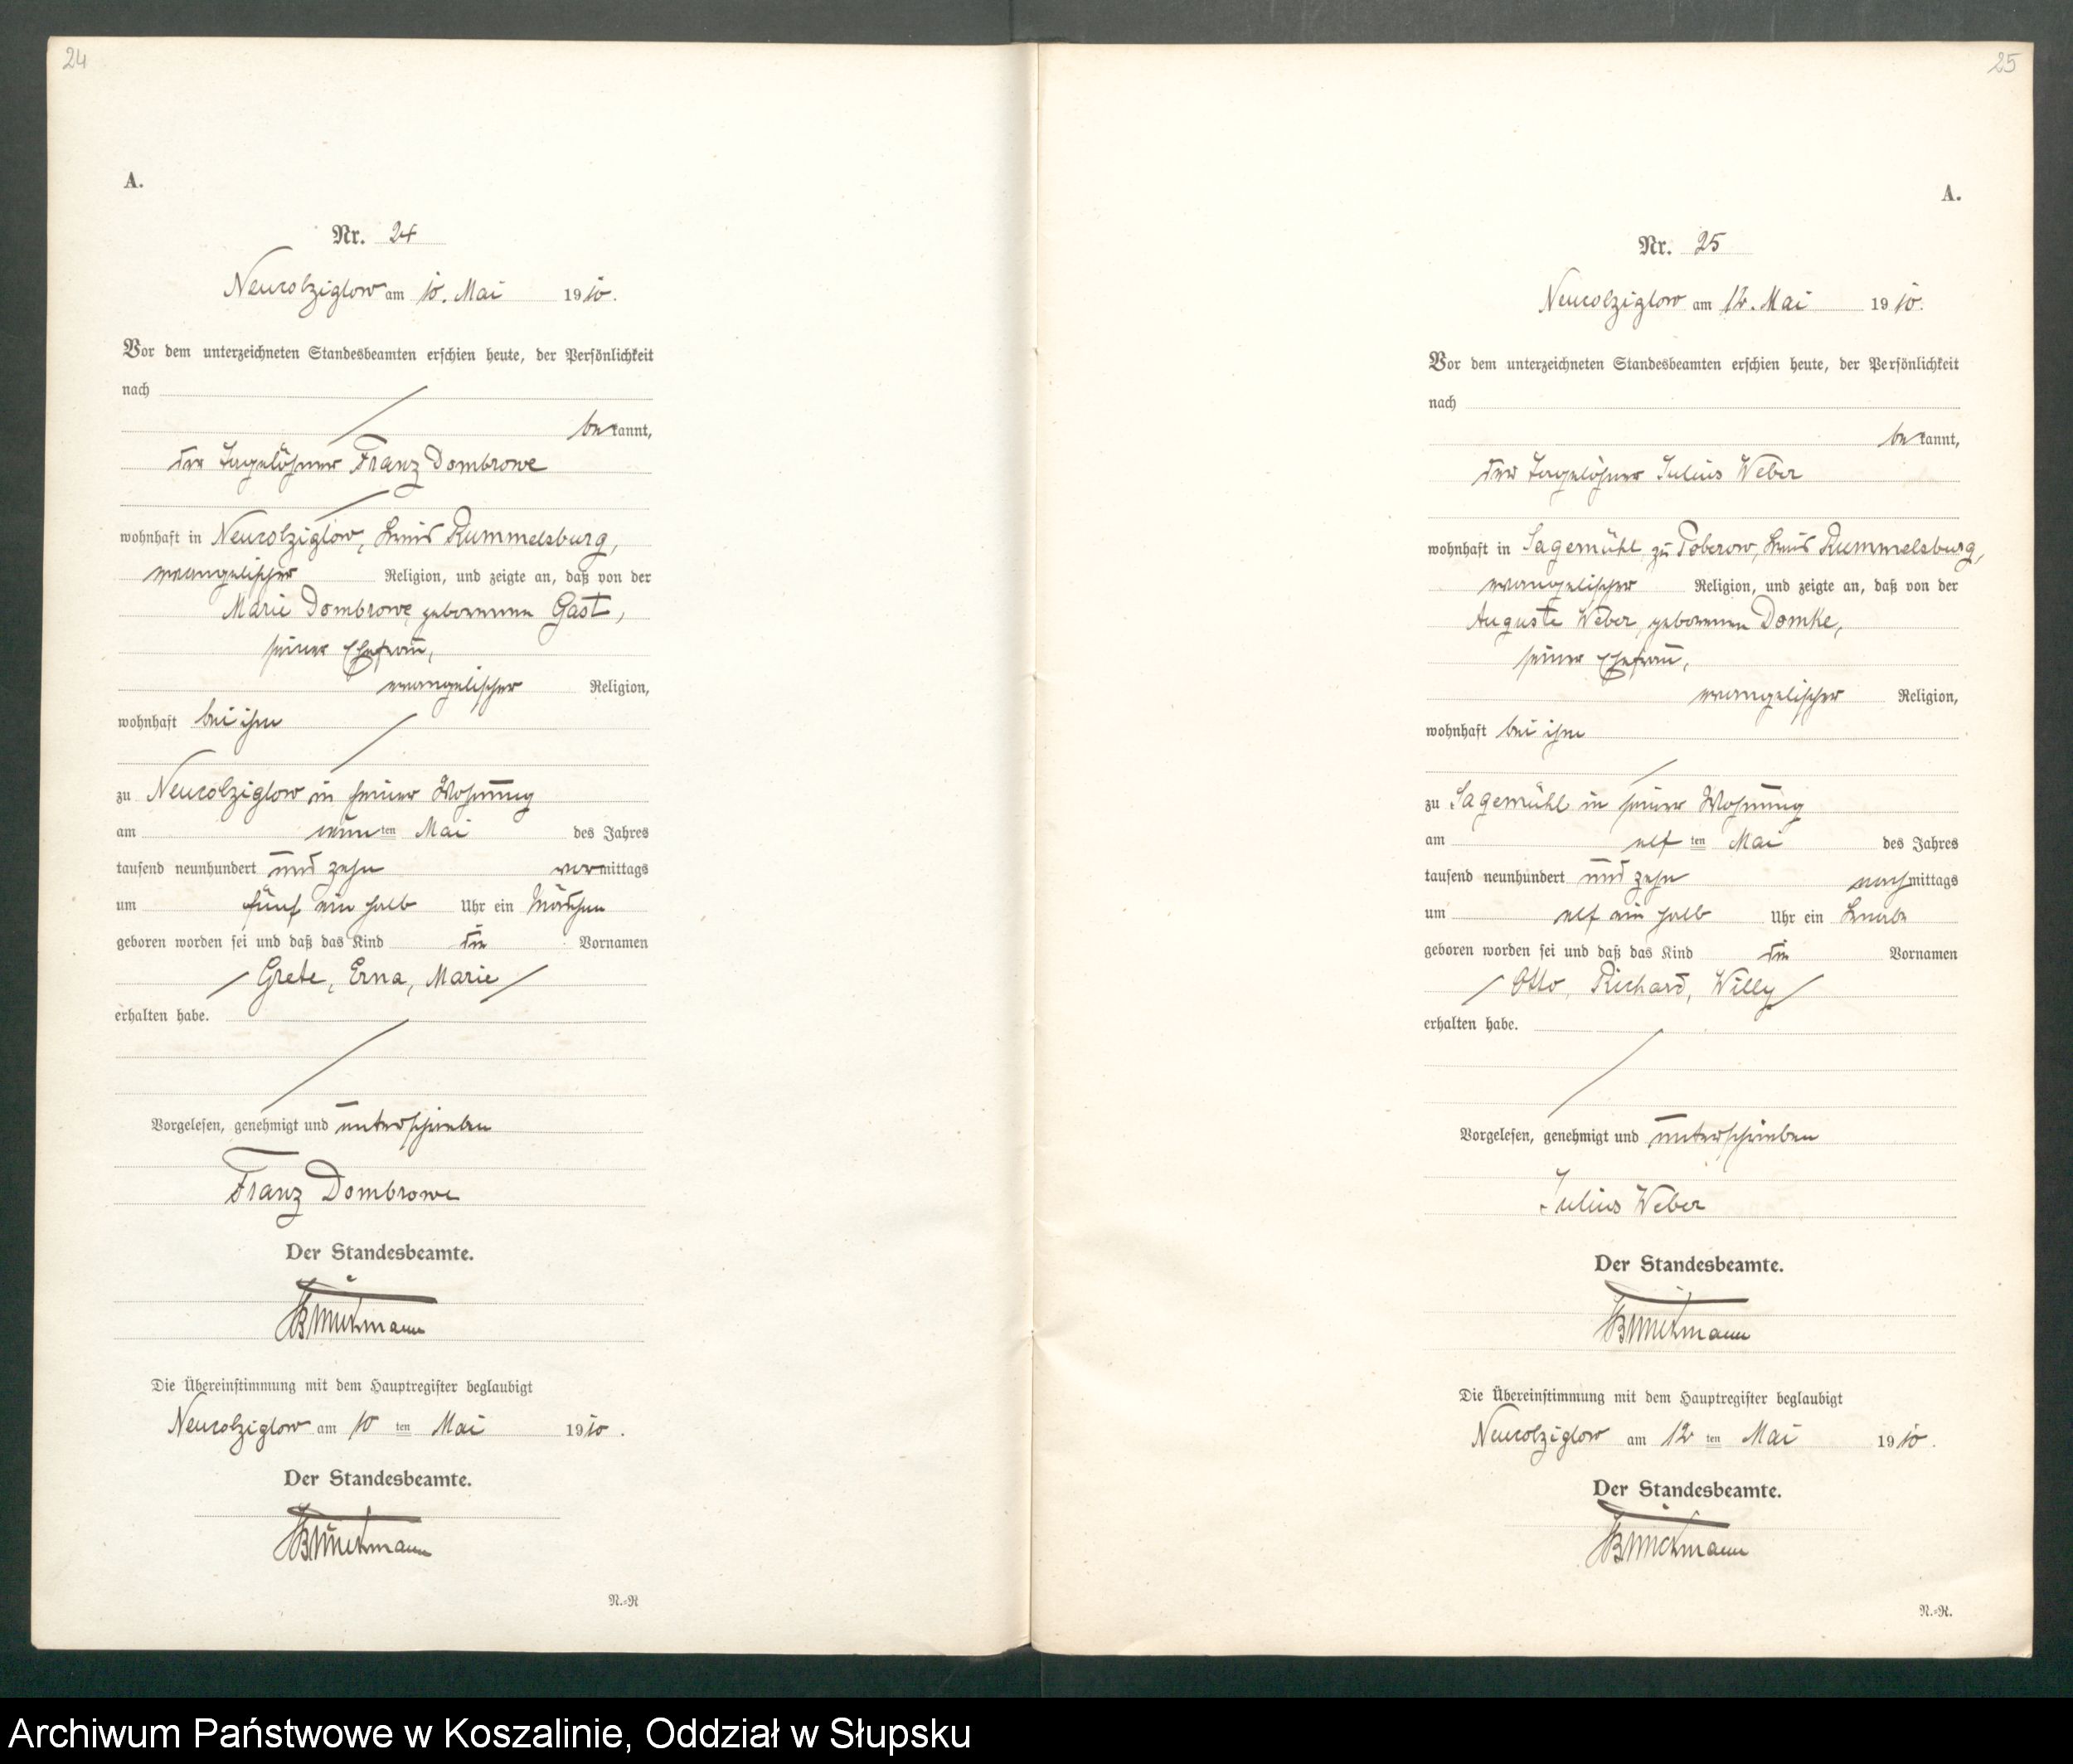 24
A.
Nr. 24
Neucolziglow am 10. Mai 1910.
Vor dem unterzeichneten Standesbeamten erschien heute, der Persönlichkeit
nach
bekannt,
der Tagelöhner Franz Dombrowe
wohnhaft in Neucolziglow, Kreis Rummelsburg,
evangelischer Religion, und zeigte an, daß von der
Marie Dombrowe geborenen Gast,
seiner Ehefrau,
evangelischer Religion,
wohnhaft bei ihm
zu Neucolziglow in seiner Wohnung
am neunten Mai des Jahres
tausend neunhundert und zehn vormittags
um fünf ein halb Uhr ein Mädchen
geboren worden sei und daß das Kind die Vornamen
Grete, Erna, Marie
erhalten habe.
Vorgelesen, genehmigt und unterschrieben
Franz Dombrowe
Der Standesbeamte.
Die Übereinstimmung mit dem Hauptregister beglaubigt
Neucolziglow am 10 ten Mai 1910.
Der Standesbeamte.
N.-R
25
A.
Nr. 25
Neucolziglow am 12. Mai 1910.
Vor dem unterzeichneten Standesbeamten erschien heute, der Persönlichkeit
nach
bekannt,
der Tagelöhner Julius Weber
wohnhaft in Sagemühl zu Poberow, Kreis Rummelsburg,
evangelischer Religion, und zeigte an, daß von der
Auguste Weber, geborenen Domke,
seiner Ehefrau,
evangelischer Religion,
wohnhaft bei ihm
zu Sagemühl in seiner Wohnung
am elf ten Mai des Jahres
tausend neunhundert und zehn nachmittags
um elf ein halb Uhr ein Knabe
geboren worden sei und daß das Kind die Vornamen
Otto, Richard, Willy
erhalten habe.
Vorgelesen, genehmigt und unterschrieben
Julius Weber
Der Standesbeamte.
Die Übereinstimmung mit dem Hauptregister beglaubigt
Neucolziglow am 12 ten Mai 1910.
Der Standesbeamte.
N.-R.
Archiwum Państwowe w Koszalinie, Oddział w Słupsku